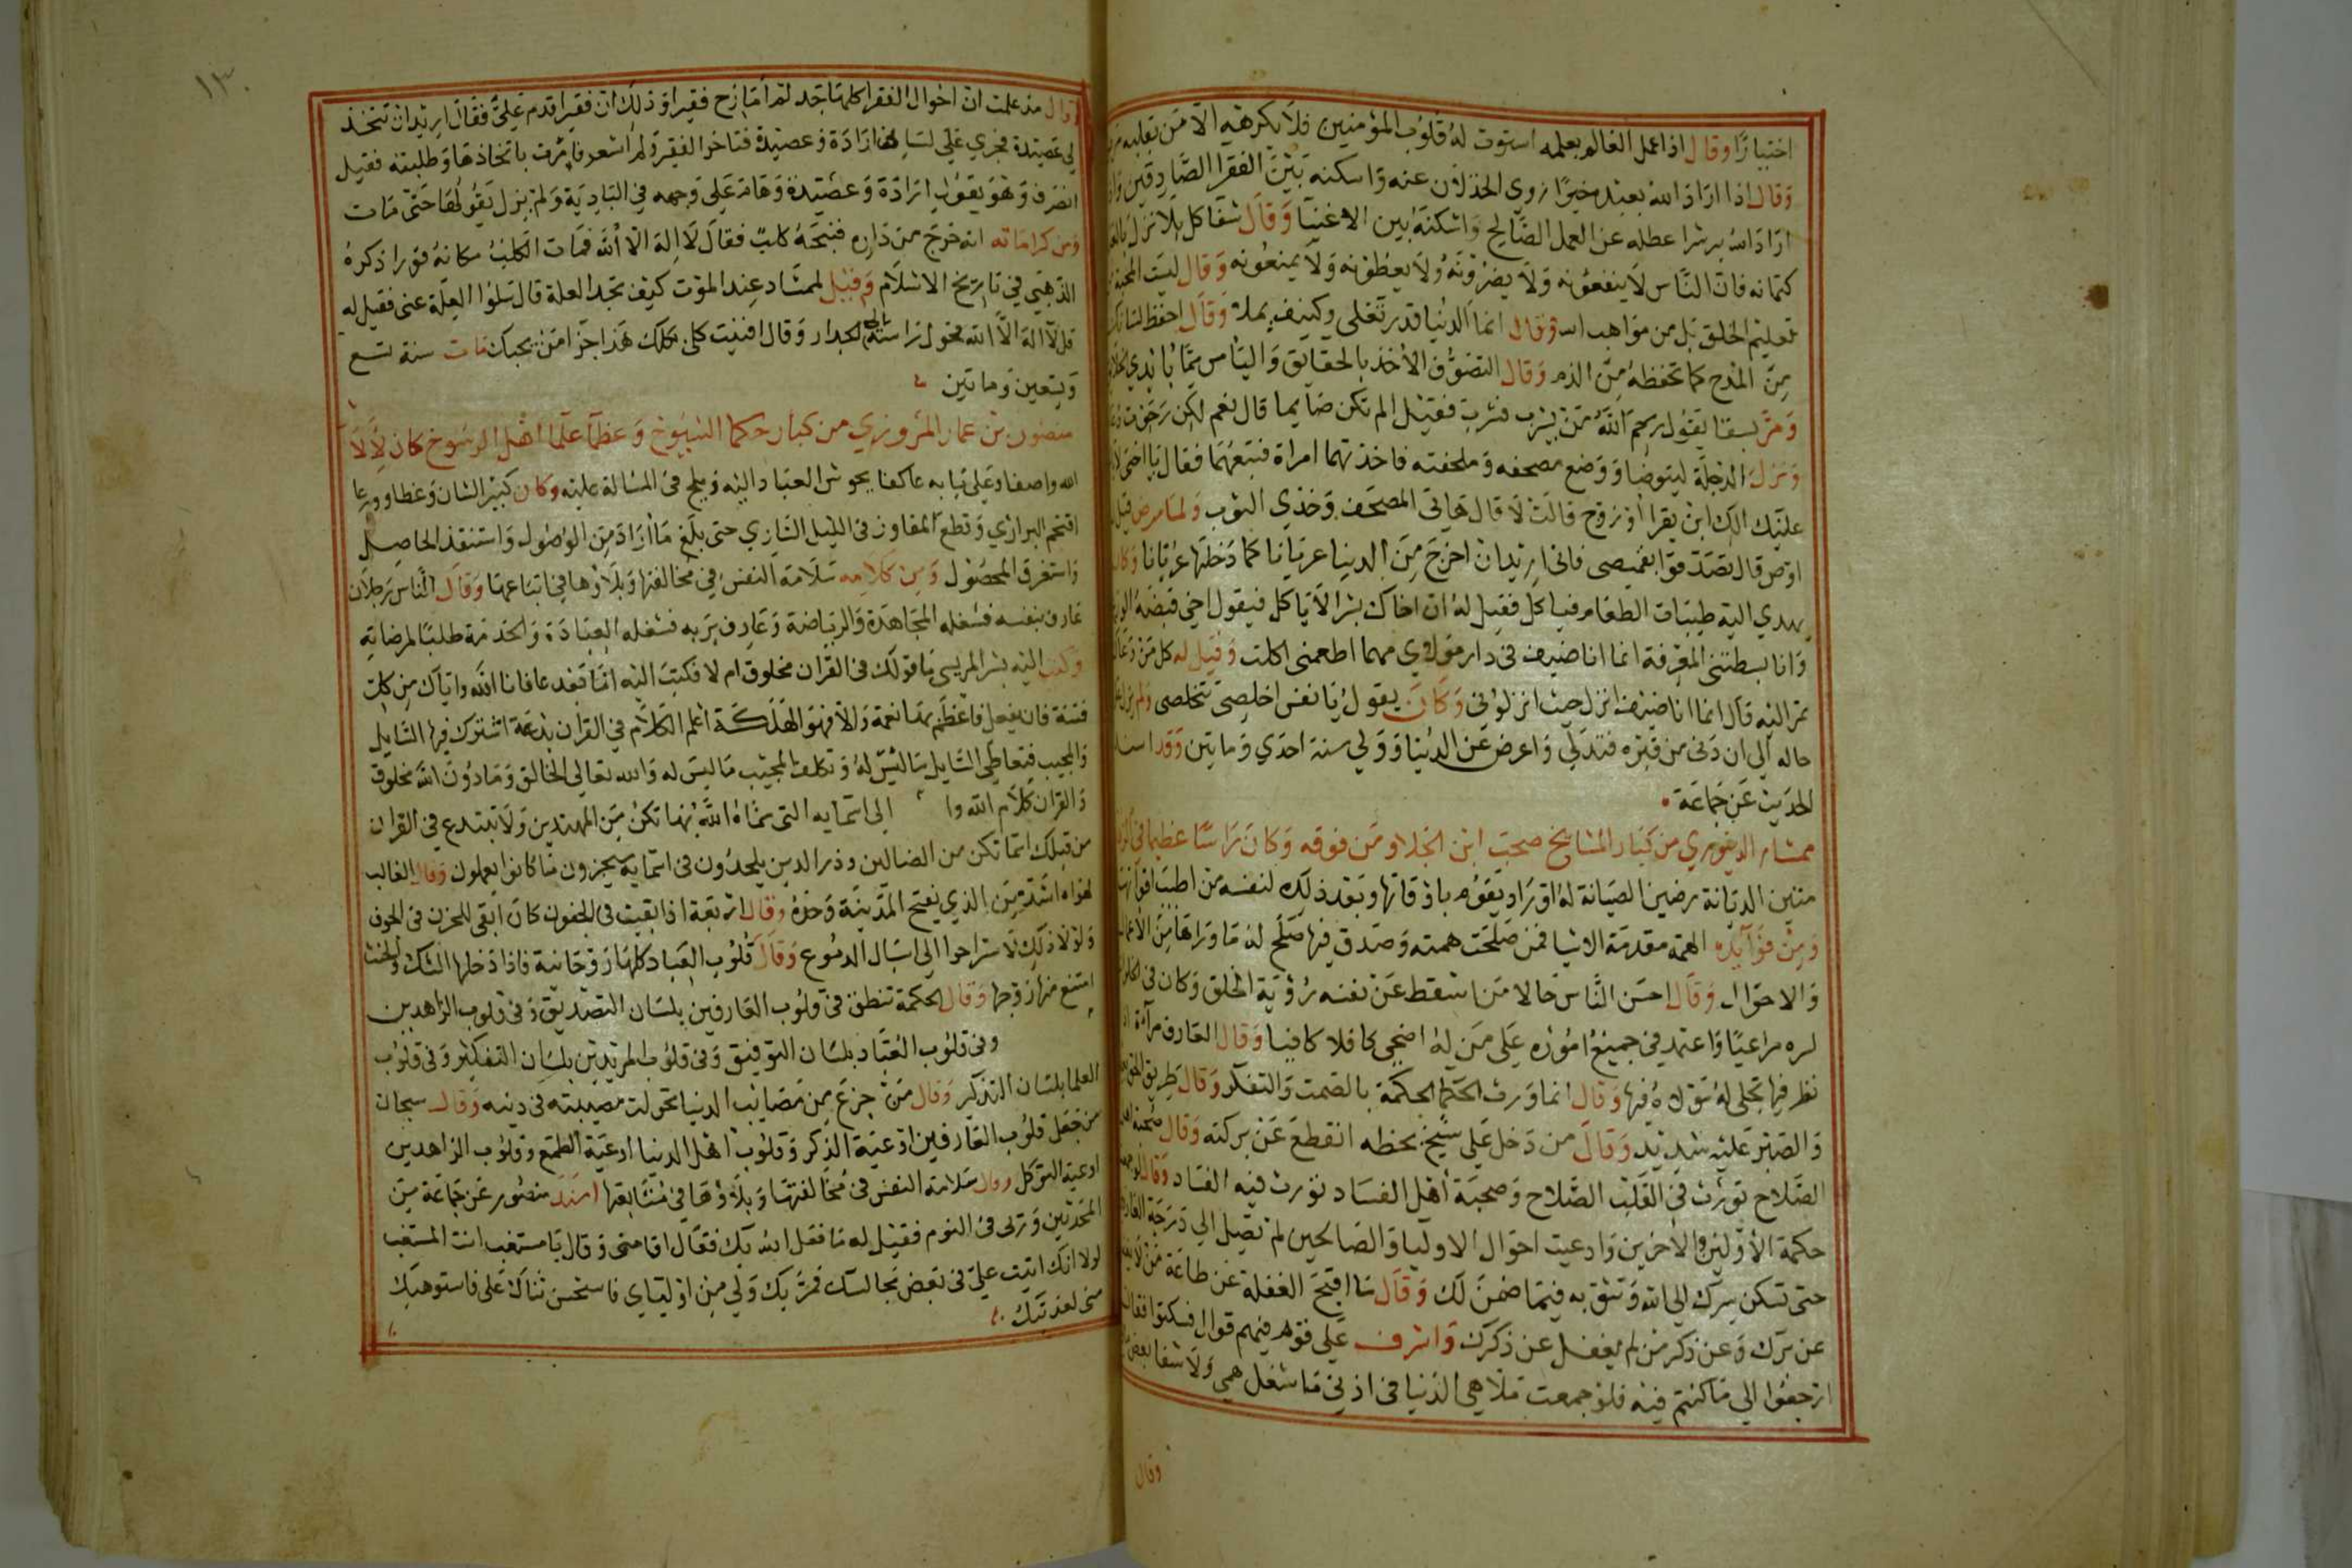 اختيارًا وقال اذا عمل العالم بعلمه استوت له قلوب المؤمنين فلا يكرهه الا من بقلبه
وقال اذا اراد الله بعبد خيرًا زوي الخذلان عنه واسكنه بين الفقرا الصادقين
اراد الله به شرا عطله عن العمل الصالح واسكنه بين الاغنيا وقال شقا كل
كتمانه فان الناس لا ينفعونه ولا يضرونه ولا يعطونه ولا يمنعونه وقال ليست المحبة
تعليم الخلق بل من مواهب الله وقال انما الدنيا قدر تغلي وكنيف يملا وقال احفظ لسانك
من المدح كما تحفظه من الذم وقال التصوف الاخذ بالحقايق والياس مما بايدي
ومر بسقا يقول رحم الله من يشرب فشرب فقيل الم تكن صايما قال نعم لكن رجوت
ونزل الدجلة ليتوضا ووضع مصحفه وملحفته فاخذتهما امراة فتبعهما فقال يا اختي
عليك الك ابن يقرا او زوج قالت لا قال هاتي المصحف وخذي الثوب ولما مرض قيل
اوص قال تصدقوا بقميصي فاني اريد ان اخرج من الدنيا عريانا كما دخلتها عريانا وكان
يهدي اليه طيبات الطعام فياكل فقيل له ان اخاك بشرا لا ياكل فيقول اخي قبضه
وانا بسطتني المعرفة انما انا ضيف في دار مولاي مهما اطعمني اكلت وقيل له كل من دعاك
تمر اليه قال انما انا ضيف انزل حيث انزلوني وكان يقول يا نفس اخلصي تتخلصي
حاله الي ان دني من قبره فتدلي واعرض عن الدنيا وولي سنة احدي وماتين وقد اسند
الحديث عن جماعة
ممشاد الدينوري من كبار المشايخ صحب ابن الجلا ومن فوقه وكان راسا عظيما في
متين الديانة رضين الصيانة له اوراد يقوم باوقاتها وبعد ذلك لنفسه من اطيب اقواتها
ومن فوايده الهمة مقدمة الاشيا فمن صلحت همته وصدق فيها صلح له ما وراها من الاعمال
والاحوال وقال احسن الناس حالا من اسقط عن نفسه رؤية الخلق وكان في
لسره مراعيا واعتمد في جميع اموره علي من له اضحي كافلا كافيا وقال العارف مرآة
نظر فيها تجلي له مولاه فيها وقال انما ورث الحكما الحكمة بالصمت والتفكر وقال طريق
والصبر عليه شديد وقال من دخل علي شيخ بحظه انقطع عن بركته وقال صحبة اهل
الصلاح تورث في القلب الصلاح وصحبة اهل الفساد تورث فيه الفساد وقال
حكمة الاولين والاخرين وادعيت احوال الاوليا والصالحين لم تصل الي درجة
حتي تسكن سرك الي الله وتثق به فيما ضمن لك وقال ما اقبح الغفلة عن طاعة من لا
عن برك وعن ذكر من لم يغفل عن ذكرك واشرف علي قوم فيهم قوال فسكتوا فقال
ارجعوا الي ما كنتم فيه فلو جمعت ملاهي الدنيا في اذني ما شغل همي ولا شفا بعض
وقال
١٣٠
وقال مذ علمت ان احوال الفقرا كلها جد لم امازح فقيرا وذلك ان فقيرا قدم علي فقال اريد ان تتخذ
لي عصيدة فجري علي لساني ارادة وعصيدة فتاخر الفقير ولم اشعر فامرت باتخاذها وطلبته فقيل
انصرف وهو يقول ارادة وعصيدة وهام علي وجهه في البادية ولم يزل يقولها حتي مات
ومن كراماته انه خرج من داره فنبحه كلب فقال لا اله الا الله فمات الكلب مكانه فورا ذكره
الذهبي في تاريخ الاسلام وقيل لممشاد عند الموت كيف تجد العلة قال سلوا العلة عني فقيل له
قل لا اله الا الله فحول راسه الي الجدار وقال افنيت كلي بكلك هذا جزا من يحبك مات سنة تسع
وتسعين وماتين
منصور بن عمار المروزي من كبار حكما الشيوخ وعظما علما اهل الرسوخ كان لالا
الله واصفا وعلي بابه عاكفا يحوش العباد اليه ويلح في المسالة عليه وكان كبير الشان وعظا وورعا
اقتحم البراري وقطع المفاوز في الليل الساري حتي بلغ ما اراد من الوصول واستنقذ الحاصل
واستغرق المحصول ومن كلامه سلامة النفس في مخالفتها وبلاوها في اتباعها وقال الناس رجلان
عارف بنفسه فشغله المجاهدة والرياضة وعارف بربه فشغله العبادة والخدمة طلبا لمرضاته
وكتب اليه بشر المريسي ما قولك في القران مخلوق ام لا فكتب اليه اما بعد عافانا الله واياك من كل
فتنة فان يفعل فاعظم بها نعمة والا فهو الهلكة اعلم الكلام في القران بدعة اشترك فيها السايل
والمجيب فتعاطي السايل ما ليس له وتكلف المجيب ما ليس له والله تعالي الخالق وما دون الله مخلوق
والقران كلام الله وا الي اسمايه التي سماه الله بها تكن من المهتدين ولا تبتدع في القران
من قبلك اسما تكن من الضالين وذر الذين يلحدون في اسمايه سيجزون ما كانوا يعملون وقال الغالب
لهواه اشد من الذي يفتح المدينة وحده وقال اربعة اذا بقيت في الجفون كان ابقي للحزن في الجوف
ولولا ذلك لاستراحوا الي اسبال الدموع وقال قلوب العباد كلها روحانية فاذا دخلها الشك والخبث
امتنع منها روحها وقال الحكمة تنطق في قلوب العارفين بلسان التصديق وفي قلوب الزاهدين
وفي قلوب العباد بلسان التوفيق وفي قلوب المريدين بلسان التفكير وفي قلوب
العلما بلسان التذكر وقال من جزع من مصايب الدنيا تحولت مصيبته في دينه وقال سبحان
من جعل قلوب العارفين اوعية الذكر وقلوب اهل الدنيا اوعية الطمع وقلوب الزاهدين
اوعية التوكل وقال سلامة النفس في مخالفتها وبلاوها في متابعتها اسند منصور عن جماعة من
المحدثين وروي في النوم فقيل له ما فعل الله بك فقال اقامني وقال يا مستغب انت المستغب
لولا انك اتيت علي في بعض مجالسك فمر بك ولي من اولياي فاستحسن ثناك علي فاستوهبك
مني لعذبتك